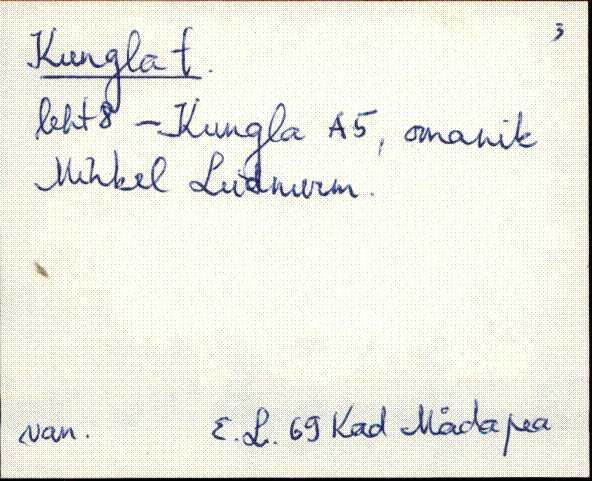 3
Kungla t.
leht 8 – Kungla A5, omanik
Mihkel Luidnurm.
van. E. L. 69 Kad Mädapea